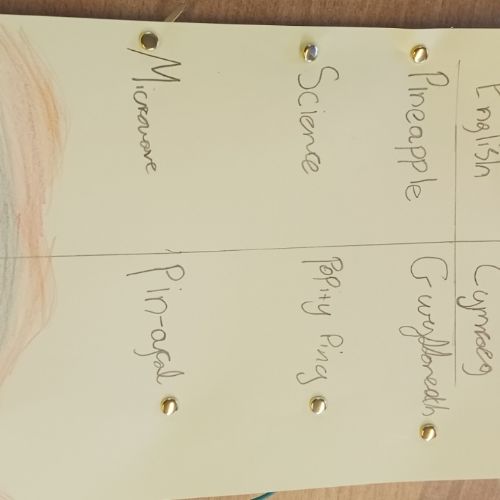 English Cymraeg
Pineapple Gwyddoneath
Science Popity Ping
Microwave Pin-afal